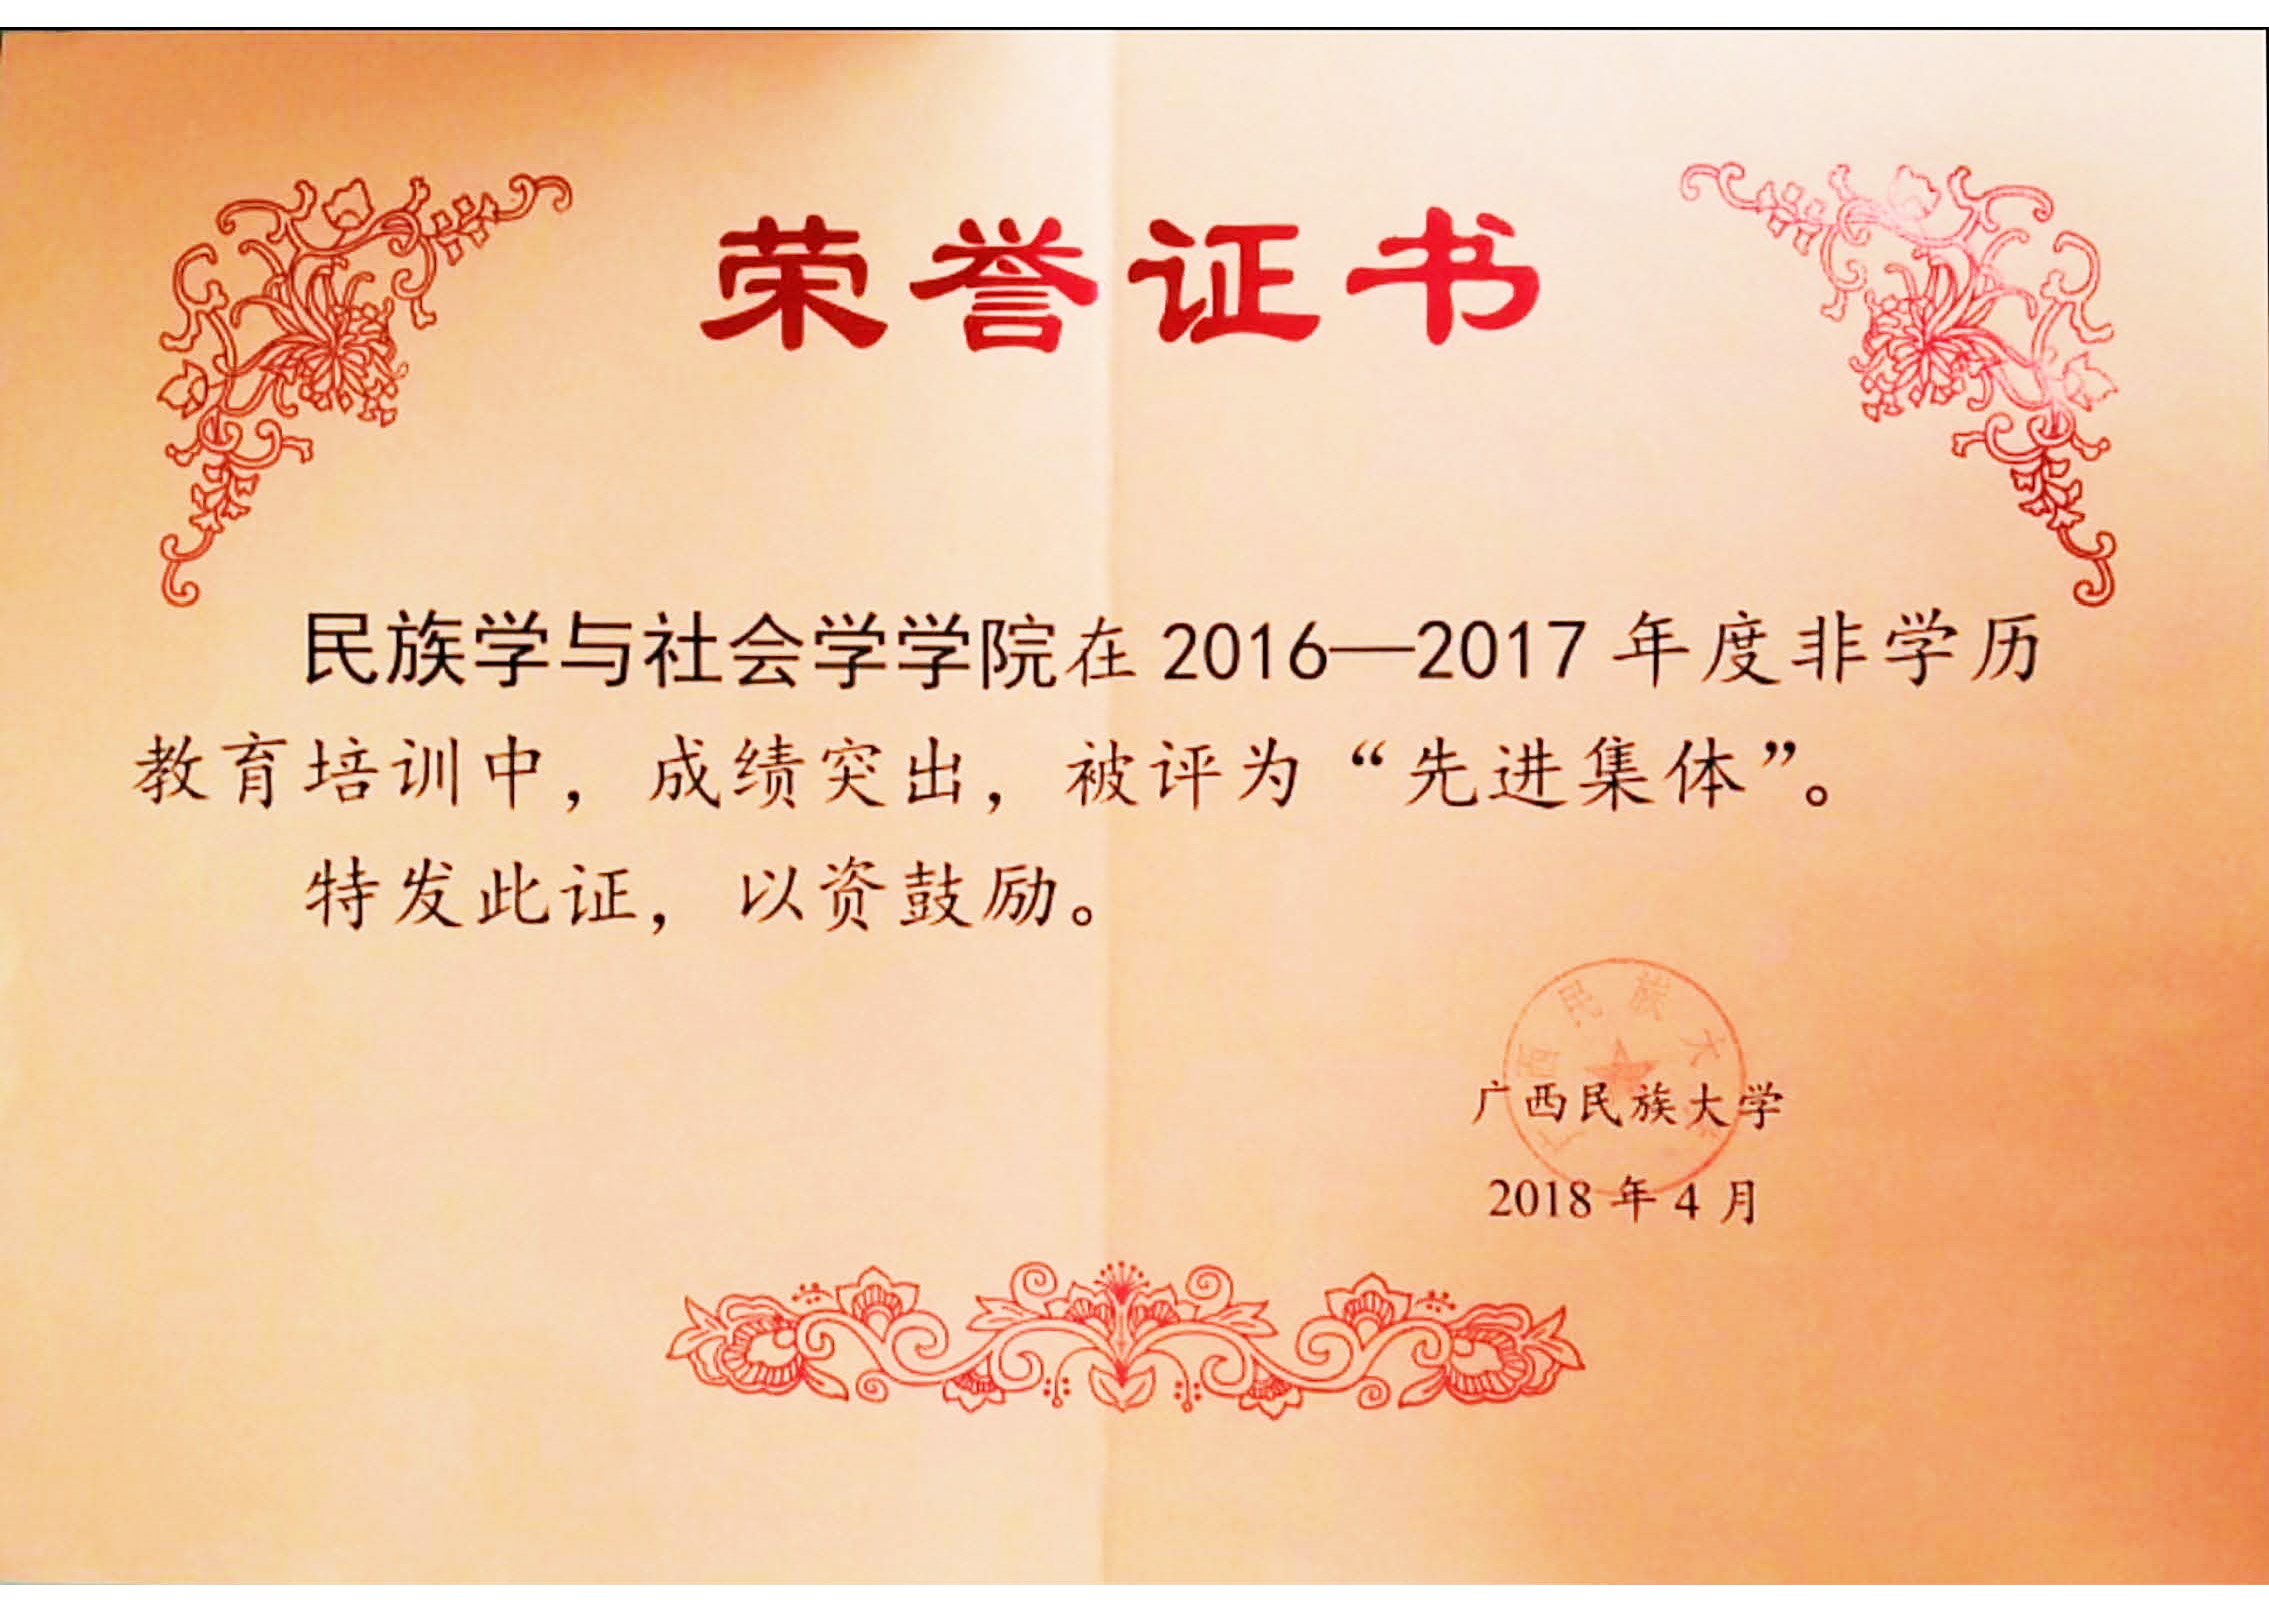 荣誉证书
民族学与社会学学院在 2016—2017 年度非学历
教育培训中，成绩突出，被评为“先进集体”。
特发此证，以资鼓励。
广西民族大学
广西民族大学
2018 年 4 月